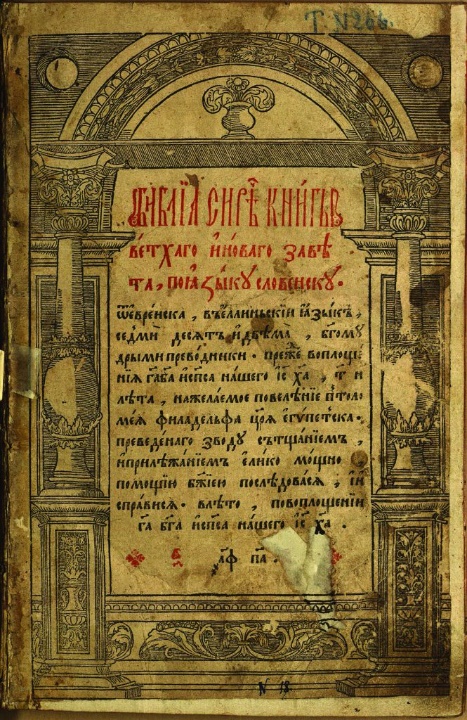 Т. N 266.
Бибаїа сирѣ҃ч книгы
ветхаго и новаго завѣ
та, по ꙗзыку словенску.
Ѿ еврейска, въ еллиньскїи ꙗзыкъ,
седмїи десѧтъ и двѣма̀, бг҃ому
дрыми преводники. преже воплоще
нїѧ гд҃а бг҃а и спс҃а нашего іс҃ ха҃, т҃ и
лѣта, на желаемое повелѣнїе птоло
меѧ филаделѳа царѧ египетска.
преведенаго зводу съ тщанїемъ,
и прилѣжанїемъ елико мощно,
помощїю бж҃їею послѣдовасѧ, и и
справисѧ. в лѣто, по воплощенїи
гд҃а бг҃а и спс҃а нашего іс҃ ха҃.
҂аф па.
N 18